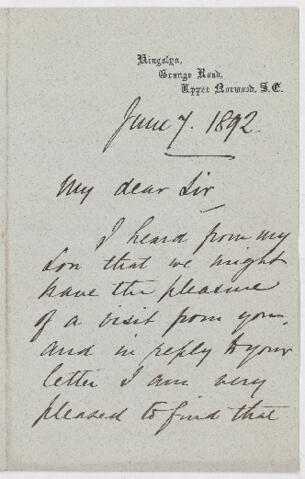 Kingslyn,
Grange Road,
Upper Norwood, S.E.
June 7. 1892.
My dear Sir
I heard from my
Son that we might
have the pleasure
of a visit from you,
and in reply to your
letter I am very
pleased to find that